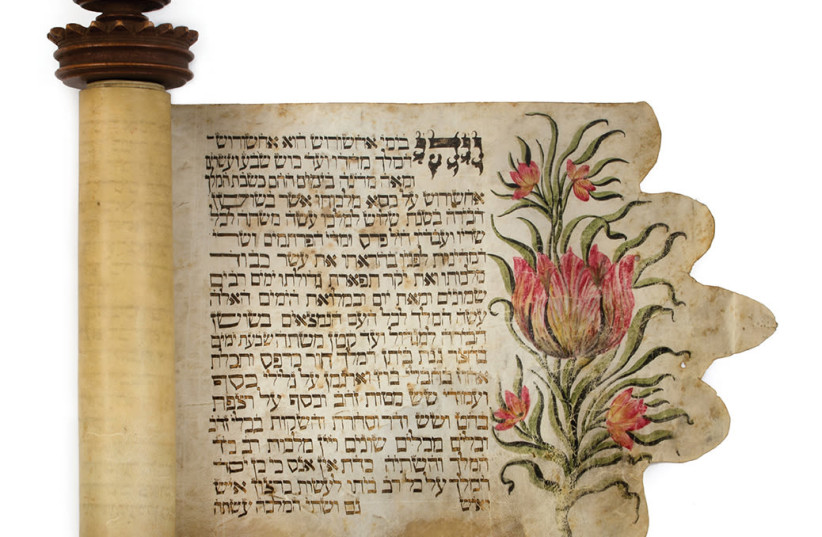 ויהי בימי אחשורוש הוא אחשורוש
המלך מהדו ועד כוש שבע ועשרים
ומאה מדינה בימים ההם כשבת המלך
אחשורוש על כסא מלכותו אשר בשושן
הבירה בשנת שלוש למלכו עשה משתה לכל
שריו ועבדיו חיל פרס ומדי הפרתמים ושרי
המדינות לפניו בהראתו את עשר כבוד
מלכותו ואת יקר תפארת גדולתו ימים רבים
שמונים ומאת יום ובמלואת הימים האלה
עשה המלך לכל העם הנמצאים בשושן
הבירה למגדול ועד קטן משתה שבעת ימים
בחצר גנת ביתן המלך חור כרפס ותכלת
אחוז בחבלי בוץ וארגמן על גלילי כסף
ועמודי שש מטות זהב וכסף על רצפת
בהט ושש ודר וסחרת והשקות בכלי זהב
וכלים מכלים שונים ויין מלכות רב כיד
המלך והשתיה כדת אין אנס כי כן יסד
המלך על כל רב ביתו לעשות כרצון איש
ואיש גם ושתי המלכה עשתה